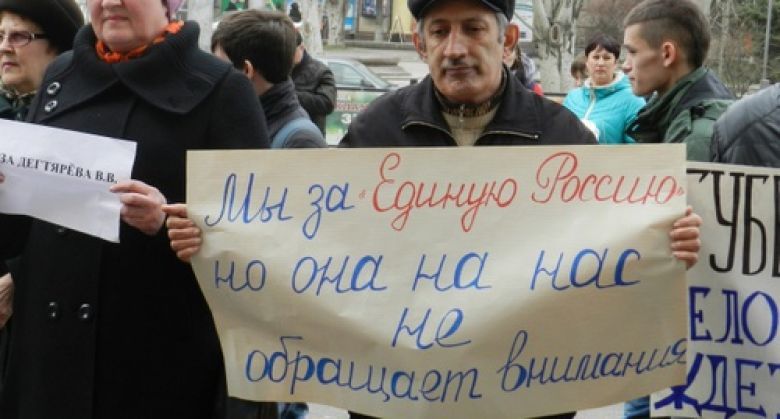 ЗА ДЕГТЯРЁВА В.В.
Мы за "Единую Россию"
но она на нас
не
обращает внимания
ГУБ
ЕЛО
ЖДЕТ